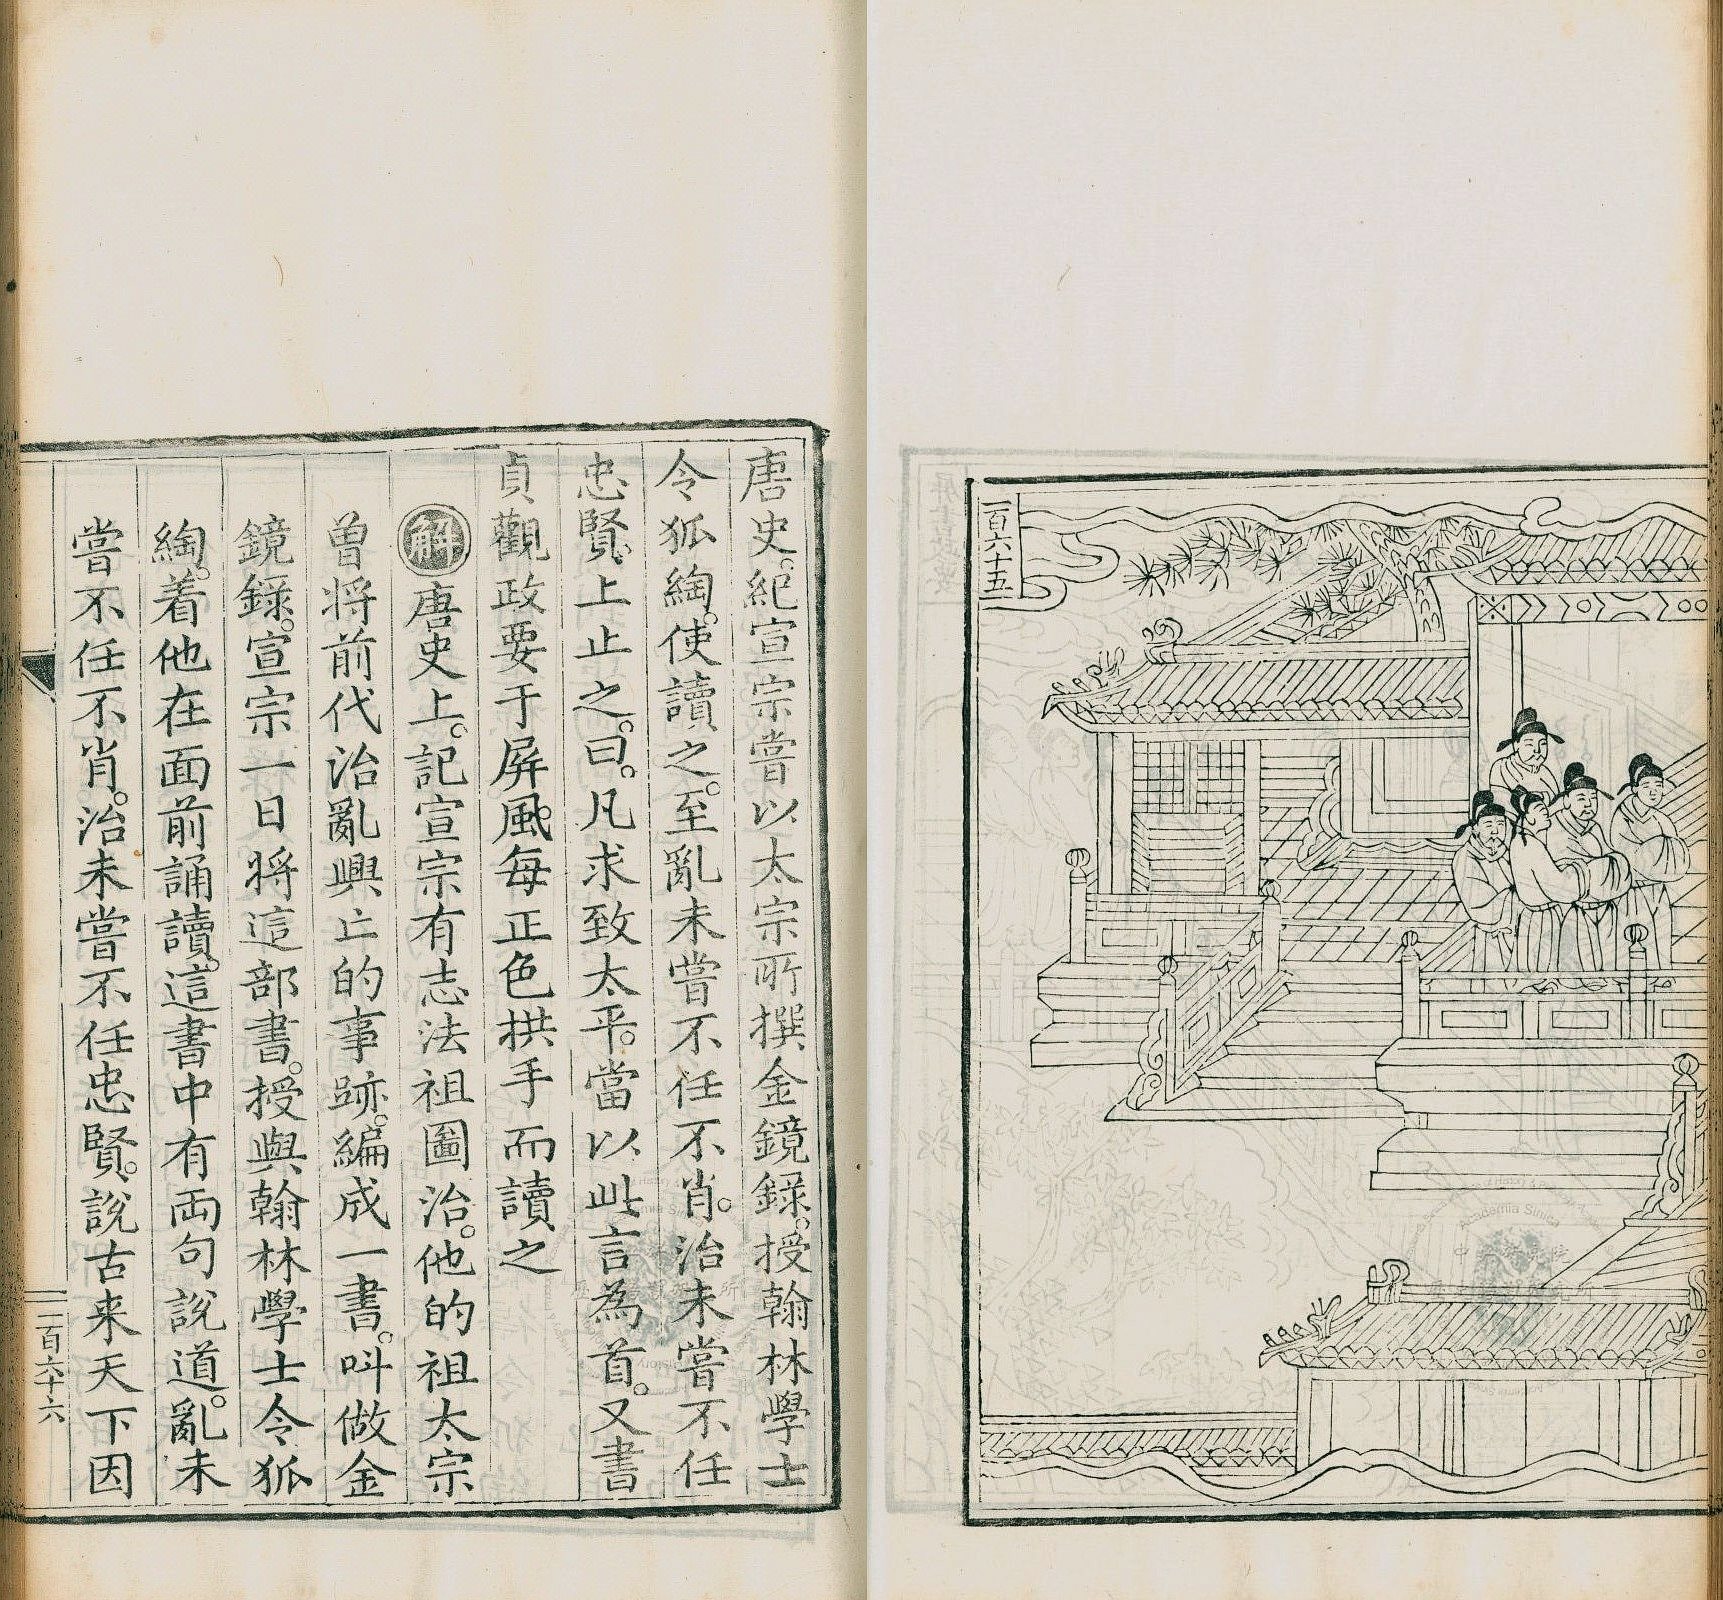 一百六十五
唐史紀宣宗嘗以太宗所撰金鏡録授翰林學士
令狐綯使讀之至亂未嘗不任不肖治未嘗不任
忠賢上止之曰凡求致太平當以此言為首又書
貞觀政要于屏風每正色拱手而讀之
解唐史上記宣宗有志法祖圖治他的祖太宗
曾將前代治亂興亡的事跡編成一書叫做金
鏡録宣宗一日將這部書授與翰林學士令狐
綯着他在面前誦讀這書中有兩句說道亂未
嘗不任不肖治未嘗不任忠賢說古来天下因
一百六十六